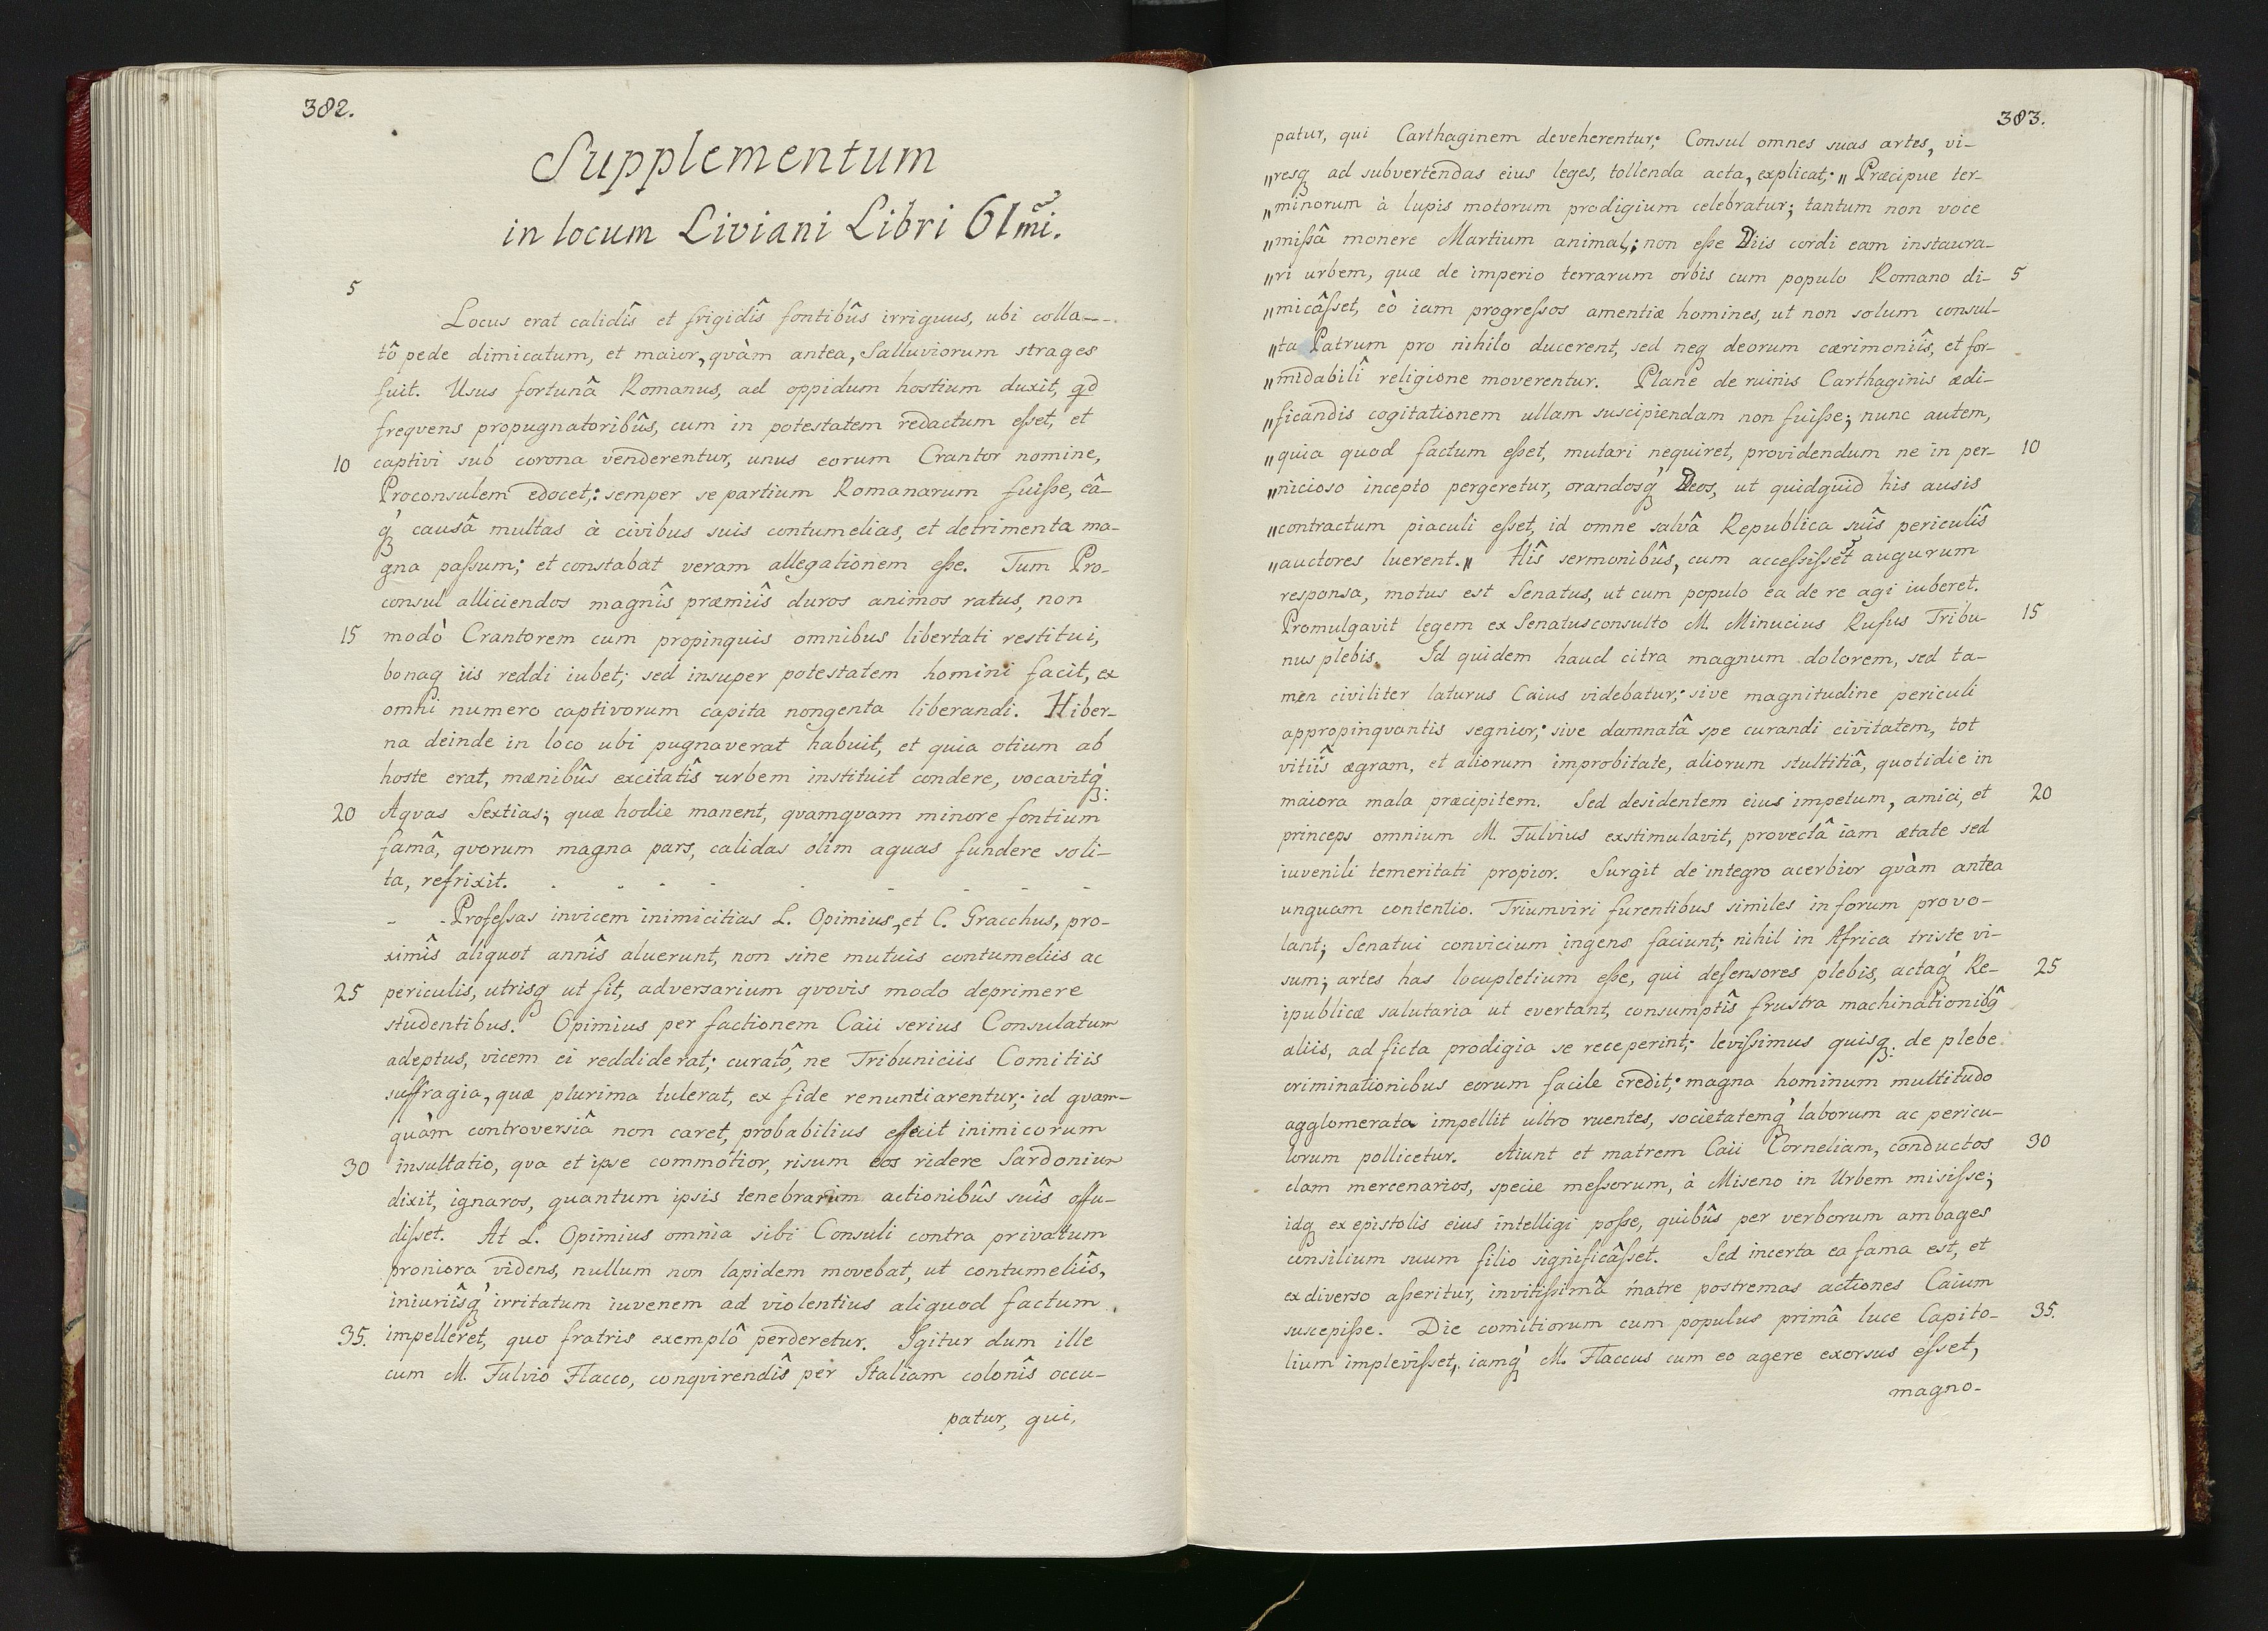 382.
Supplementum
in locum Liviani Libri 61mi.
5
Locus erat calidîs et frigidîs fontibûs irriguus, ubi colla--
tô pede dimicatum, et maior, qvàm antea, Salluviorum strages
fuit. Usus fortunâ Romanus, ad oppidum hostium duxit, qd
freqvens propugnatoribûs, cum in potestatem redactum eſset, et
10 captivi sub corona venderentur, unus eorum Crantor nomine,
Proconsulem edocet,: semper se partium Romanarum fuiſse, eâ-
q́ causâ multas à civibus suis contumelias, et detrimenta ma-
gna paſsum; et constabat veram allegationem eſse. Tum Pro-
consul alliciendos magnîs præmiîs duros animos ratus, non
15 modò Crantorem cum propinquis omnibus libertati restitui,
bonaq iis reddi iubet; sed insuper potestatem homini facit, ex
omni numero captivorum capita nongenta liberandi. Hiber-
na deinde in loco ubi pugnaverat habuit, et quia otium ab
hoste erat, mœnibûs excitatîs urbem instituit condere, vocavitq́:
20 Aqvas Sextias; quæ hodie manent, qvamqvam minore fontium
famâ, qvorum magna pars, calidas olim aquas fundere soli-
ta, refrixit. - - - - - - - - -
- - Profeſsas invicem inimicitias L. Opimius, et C. Gracchus, pro-
ximîs aliquot annîs aluerunt, non sine mutuis contumeliis ac
25 periculis, utrisq ut fit, adversarium qvovis modo deprimere
studentibus. Opimius per factionem Caii serius Consulatum
adeptus, vicem ei reddiderat; curatô, ne Tribuniciis Comitiis
suffragia, quæ plurima tulerat, ex fide renuntiarentur; id qvam-
quàm controversiâ non caret, probabilius effecit inimicorum
30 insultatio, qva et ipse commotior, risum eos ridere Sardonium
dixit, ignaros, quantum ipsis tenebrarum actionibûs suîs offu-
diſset. At L. Opimius omnia sibi Consuli contra privatum
proniora videns, nullum non lapidem movebat, ut contumeliîs,
iniuriîsq́ irritatum iuvenem ad violentius aliquod factum
35. impelleret, quo fratris exemplô perderetur. Igitur dum ille
cum M. Fulvio Flacco, conqvirendîs per Italiam colonîs occu-
patur, qui,
383.
patur, qui Carthaginem deveherentur; Consul omnes suas artes, vi-
„resq ad subvertendas eius leges, tollenda acta, explicat,: „ Præcipue ter-
„minorum à lupis motorum prodigium celebratur; tantum non voce
„miſsâ monere Martium animal,: non eſse Diis cordi eam instaura-
„ri urbem, quæ de imperio terrarum orbis cum populo Romano di- 5
„micâſset, eò iam progreſsos amentiæ homines, ut non solum consul-
„ta Patrum pro nihilo ducerent, sed neq deorum cærimoniîs, et for-
„midabilî religione moverentur. Planè de ruinis Carthaginis ædi-
„ficandis cogitationem ullam suscipiendam non fuiſse; nunc autem,
„quia quod factum eſset, mutari nequiret, providendum ne in per- 10
„nicioso incepto pergeretur, orandosq́ Deos, ut quidquid his ausis
„contractum piaculi eſset, id omne salvâ Republica suîs periculîs
„auctores luerent.„ Hîs sermonibûs, cum acceſsiſset augurum
responsa, motus est Senatus, ut cum populo ea de re agi iuberet.
Promulgavit legem ex Senatusconsulto M. Minucius Rufus Tribu- 15
nus plebis. Id quidem haud citra magnum dolorem, sed ta-
men civiliter laturus Caius videbatur,: sive magnitudine periculi
appropinqvantis segnior,: sive damnatâ spe curandi civitatem, tot
vitiîs ægram, et aliorum improbitate, aliorum stultitiâ, quotidie in
maiora mala præcipitem. Sed desidentem eius impetum, amici, et 20
princeps omnium M. Fulvius exstimulavit, provectâ iam ætate sed
iuvenili temeritati propior. Surgit de integro acerbior qvàm antea
unquam contentio. Triumviri furentibus similes in forum provo-
lant; Senatui convicium ingens faciunt; nihil in Africa triste vi-
sum; artes has locupletium eſse, qui defensores plebis, actaq́ Re- 25
ipublicæ salutaria ut evertant, consumptîs frustra machinationibq̂
aliis, ad ficta prodigia se receperint; leviſsimus quisq: de plebe
criminationibus eorum facile credit,: magna hominum multitudo
agglomerata impellit ultro ruentes, societatemq́ laborum ac pericu-
lorum pollicetur. Aiunt et matrem Caii Corneliam, conductos 30
clam mercenarios, specie meſsorum, à Miseno in Urbem misiſse;
idq ex epistolis eius intelligi poſse, quibûs per verborum ambages
consilium suum filio significâſset. Sed incerta ea fama est, et
ex diverso aſseritur, invitiſsimâ matre postremas actiones Caium
suscepiſse. Die comitiorum cum populus primâ luce Capito- 35.
lium impleviſset, iamq́ M. Flaccus cum eo agere exorsus eſset,
magno-